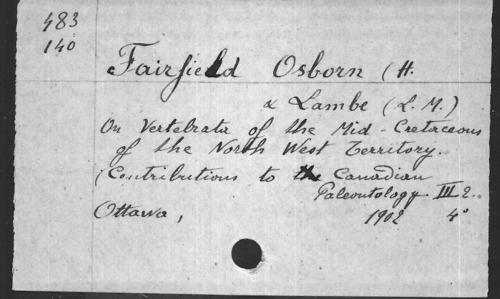 483
140
Fairfield Osborn (H.
& Lambe (L. M.)
On Vertebrata of the Mid-Cretaceous
of the North West Territory.
(Contributions to the Canadian
Paleontology III 2.
Ottawa, 1902 4°